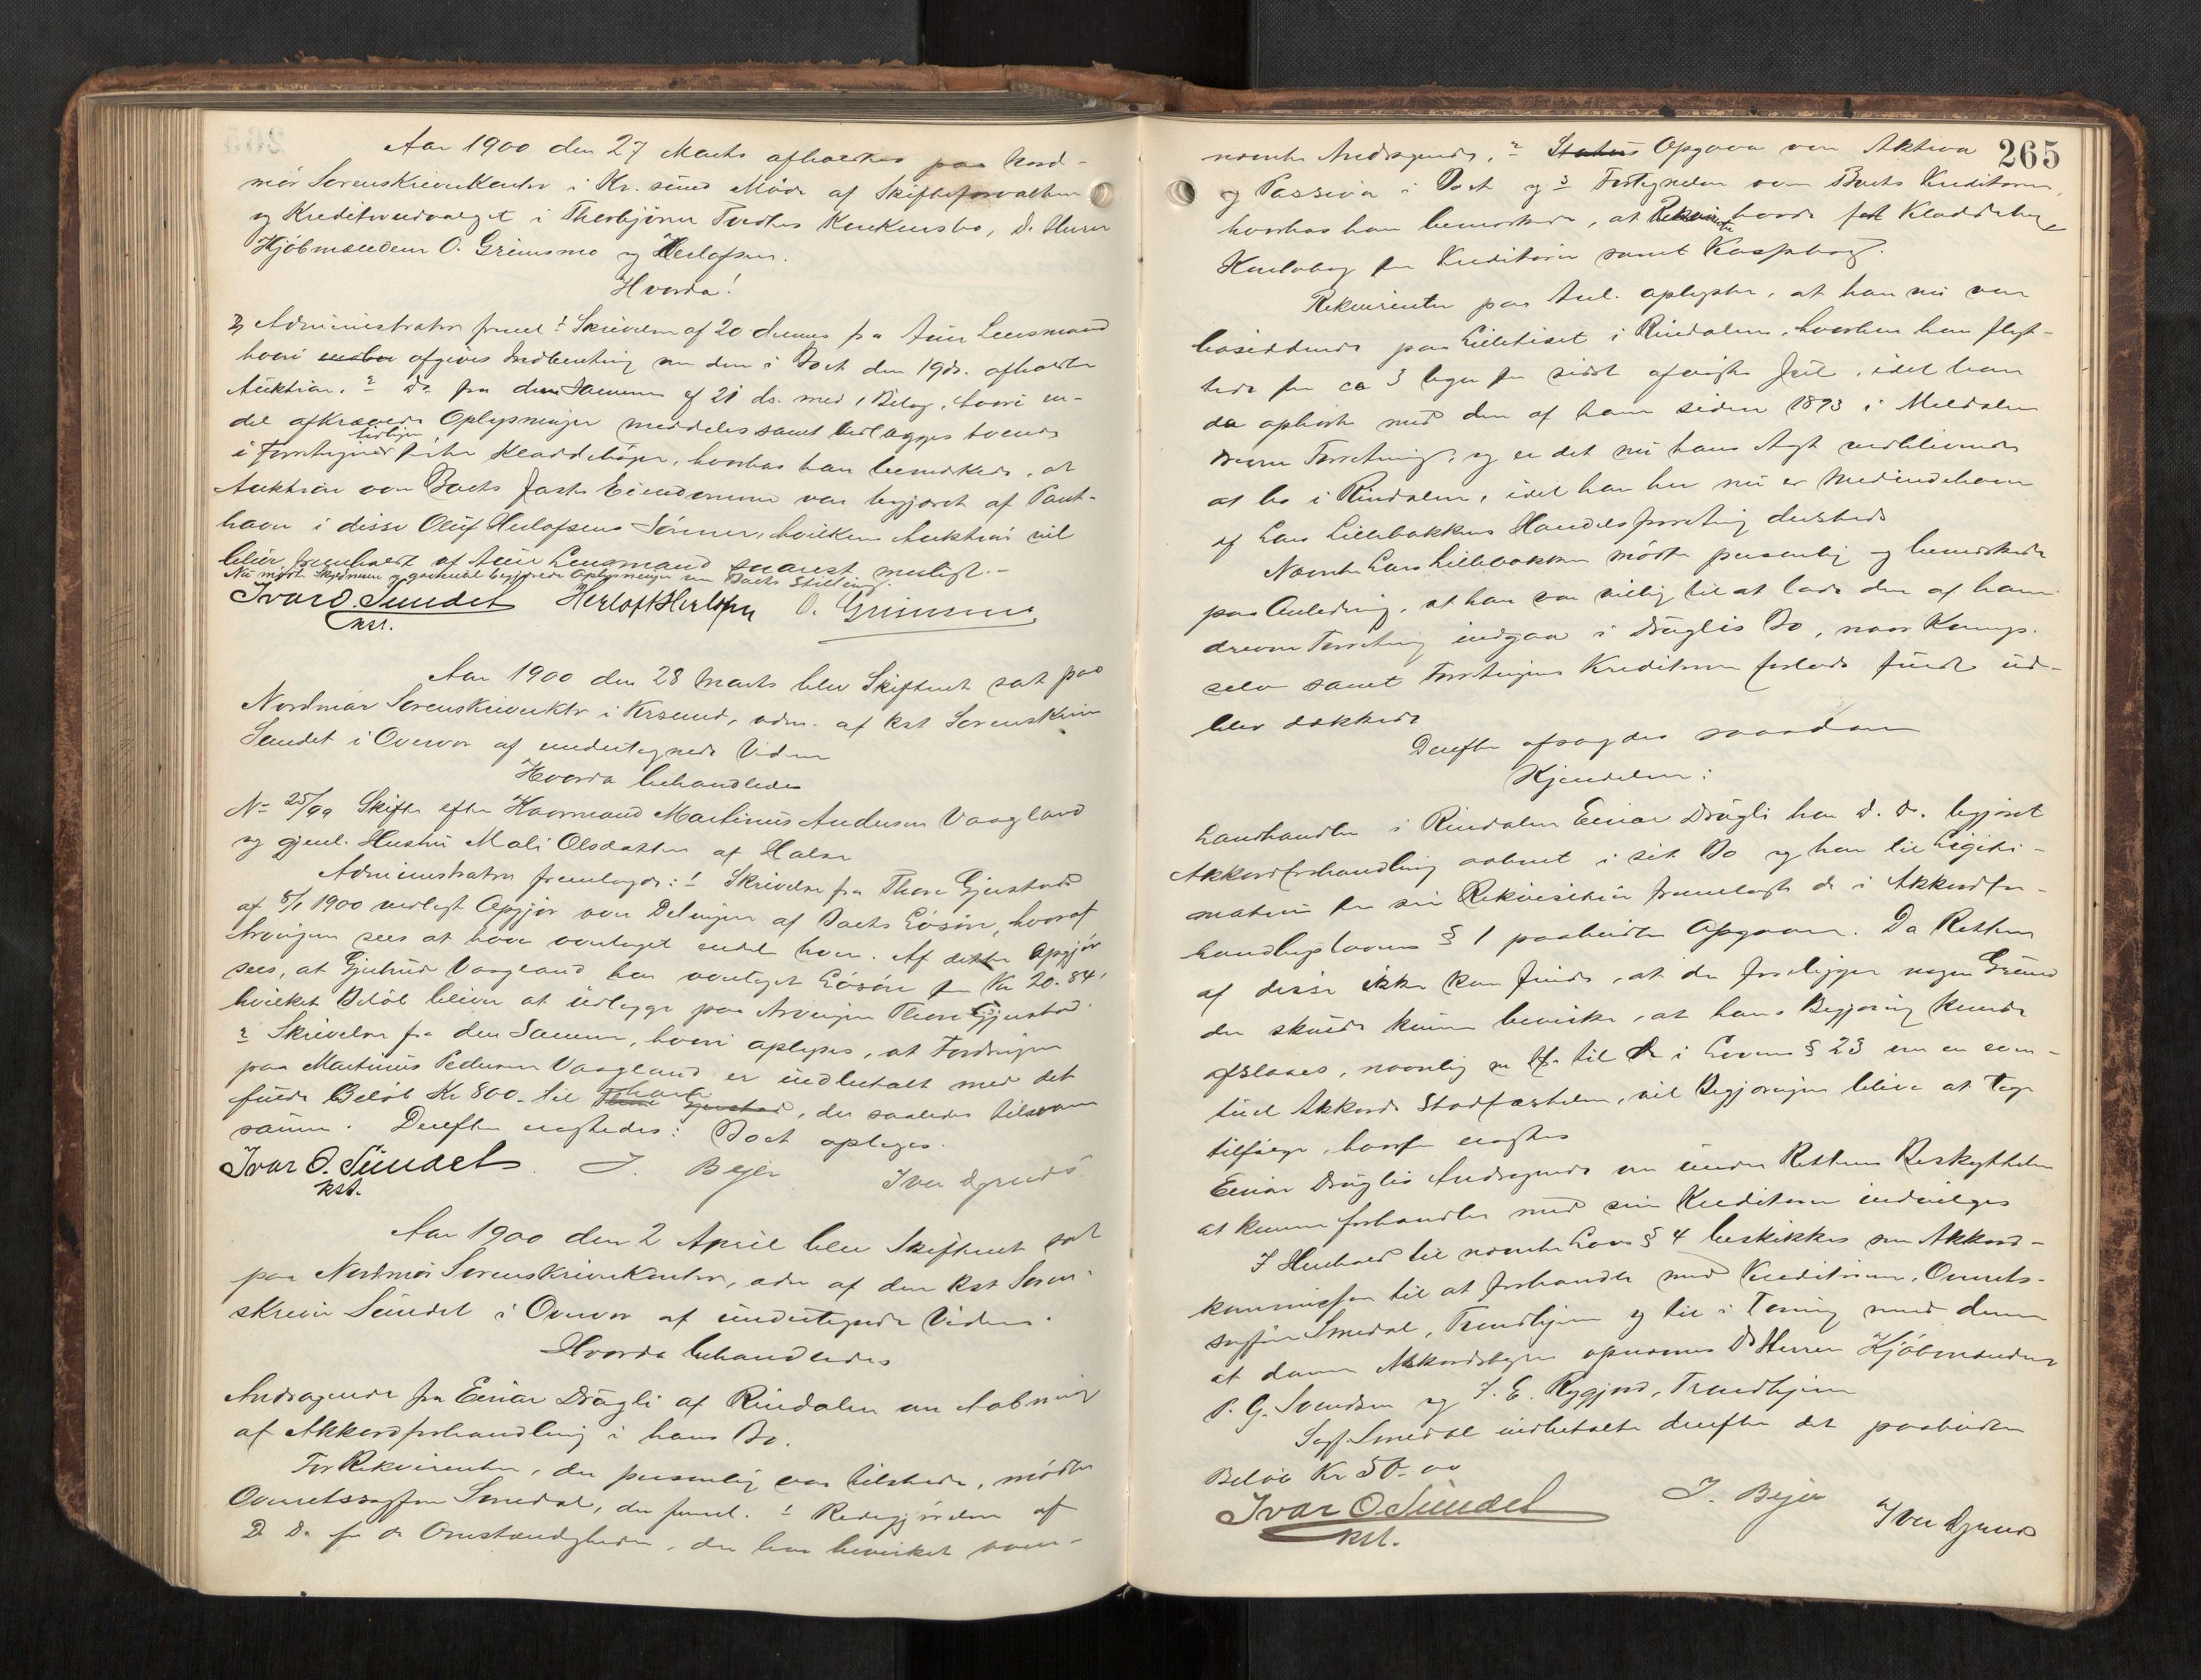 Aar 1900 den 27 Marts afholdtes paa Nord-
mør Sorenskriverkontor i Kr.sund Møde af Skifteforvalteren
og Kreditorudvalget i Thorbjørn Konkursbo, D. Herrer
Kjøbmændene O. Grimsmo og Herlofsen.
Hvorda!
Administrator freml. 1 Skrivelse af 20 dennes fra Aure Lensmand
hvori afgives Indberetning om den i Boet den 19 ds. afholdte
Auktion. 2 Do fra den Samme af 21 ds. med 1 Bilag, hvori en-
del afkrævede Oplysninger meddeles samt vedlægges tvende
i Forretningen tidligere førte Kladdebøger, hvorhos han bemærkede, at
Auktion over Boets faste Eiendomme var begjæret af Pant-
haver i disse Oluf Herlofsens Sønner, hvilken Auktion vil
blive fremholdt af Aure Lensmand snarest muligt.-
Nu mødte Skyldneren og Oplysninger om Boets Stilling.
Ivar O. Sundet Herlof Herlofsen O. Grimsmo
kst.
Aar 1900 den 28 Marts blev Skifteret sat paa
Nordmør Sorenskriverktr i Krsund, adm. af kst Sorenskriver
Sundet i Overvær af undertegnede Vidner
Hvorda behandledes
No 25/99 Skifte efter Kaarmand Martinus Andersen Vaagland
og gjenl. Hustru Mali Olsdatter af Halse
Administrator fremlagde: 1 Skrivelse fra Thore Gjerstad
af 8/1 1900 vedlagt Opgjør over Delingen af Boets Løsøre, hvoraf
Arvingerne sees at have overtaget endel hver. Af dette Opgjør
sees, at Gjertrud Vaagland har overtaget Løsøre for Kr 20.84,
hvilket Beløb bliver at udlægge paa Arvingen Thore Gjerstad.
2 Skrivelse fra den Samme, hvori oplyses, at Fordringen
paa Martinus Pedersen Vaagland er indbetalt med det
fulde Beløb Kr 800.- til Thore Gjerstad, der saaledes tilsvarer
samme. Derefter eragtedes: Boet oplages.
Ivar O. Sundet. J. Bejer Iver
kst.
Aar 1900 den 2 April blev Skifteret sat
paa Nordmør Sorenskriverkontor, adm af den kst Soren-
skriver Sundet i Overvær af undertegnede Vidner.
Hvorda behandledes
Andragende fra Einar Drugli af Rindalen om Aabning
af Akkordforhandling i hans Bo.
For Rekvirenten, der personlig var tilstede, mødte
Overretssagfører Smedal, der freml. 1 Redegjørelse af
D. D. for de Omstændigheder, der har bevirket oven-
265
nævnte Andragende, 2 Status Opgave over Aktiva
og Passiva i Boet og 3 Fortegnelse over Boets Kreditorer,
hvorhos han bemærkede, at Rekvirenten havde ført Kladdebog
Hovedbog for Kreditorer samt Kassabog.
Rekvirenten paa Anl. oplyste, at han nu var
bosiddende paa i Rindalen, hvorhen han flyt-
tede for ca 3 Uger før sidst afvigte Jul, idet han
da ophørte med den af ham siden 1893 i Meldalen
drevne Forretning, og er det nu hans Agt vedblivende
at bo i Rindalen, idet han her nu er Medindehaver
af Lars Lillebakkens Handelsforretning dersteds
Nævnte Lars Lillebakken mødte personlig og bemærkede
paa Anledning, at han var villig til at lade den af ham
drevne Forretning indgaa i Druglis Bo, naar
selv samt Forretningens Kreditorer forlods fuldt ud-
blev dækkede
Derefter afsagdes saadan
Kjendelse:
Landhandler i Rindalen Einar Drugli har d. D. begjæret
Akkordforhandling aabnet i sit Bo og har til Legiti-
mation for sin Rekvisition fremlagt de i Akkordfor-
handlingslovens § 1 paabudte Opgaver. Da Retten
af disse ikke kan finde, at der foreligger nogen Grund
der skulde kunne bevirke, at hans Begjæring kunde
afslaaes, navnlig m. H. til de i Lovens § 23 om en even-
tuel Akkords Stadfæstelse, vil Begjæringen blive at tage
tilfølge, hvorfor eragtes
Einar Druglis Andragende om under Rettens Beskyttelse
at kunne forhandle med sine Kreditorer indvilges
I Henhold til nævnte Lovs § 4 beskikkes som Akkord-
kommissær til at forhandle med Kreditorerne, Overrets-
sagfører Smedal, Trondhjem og til i Forening med denne
at danne Akkordstyre opnævnes D Herrer Kjøbmændene
P. G. Svendsen og J. E. Rygjord, Trondhjem
Sagf. Smedal indbetalte derefter det paabudne
Beløb Kr 50.00
Ivar O Sundet J. Bejer Iver
kst.